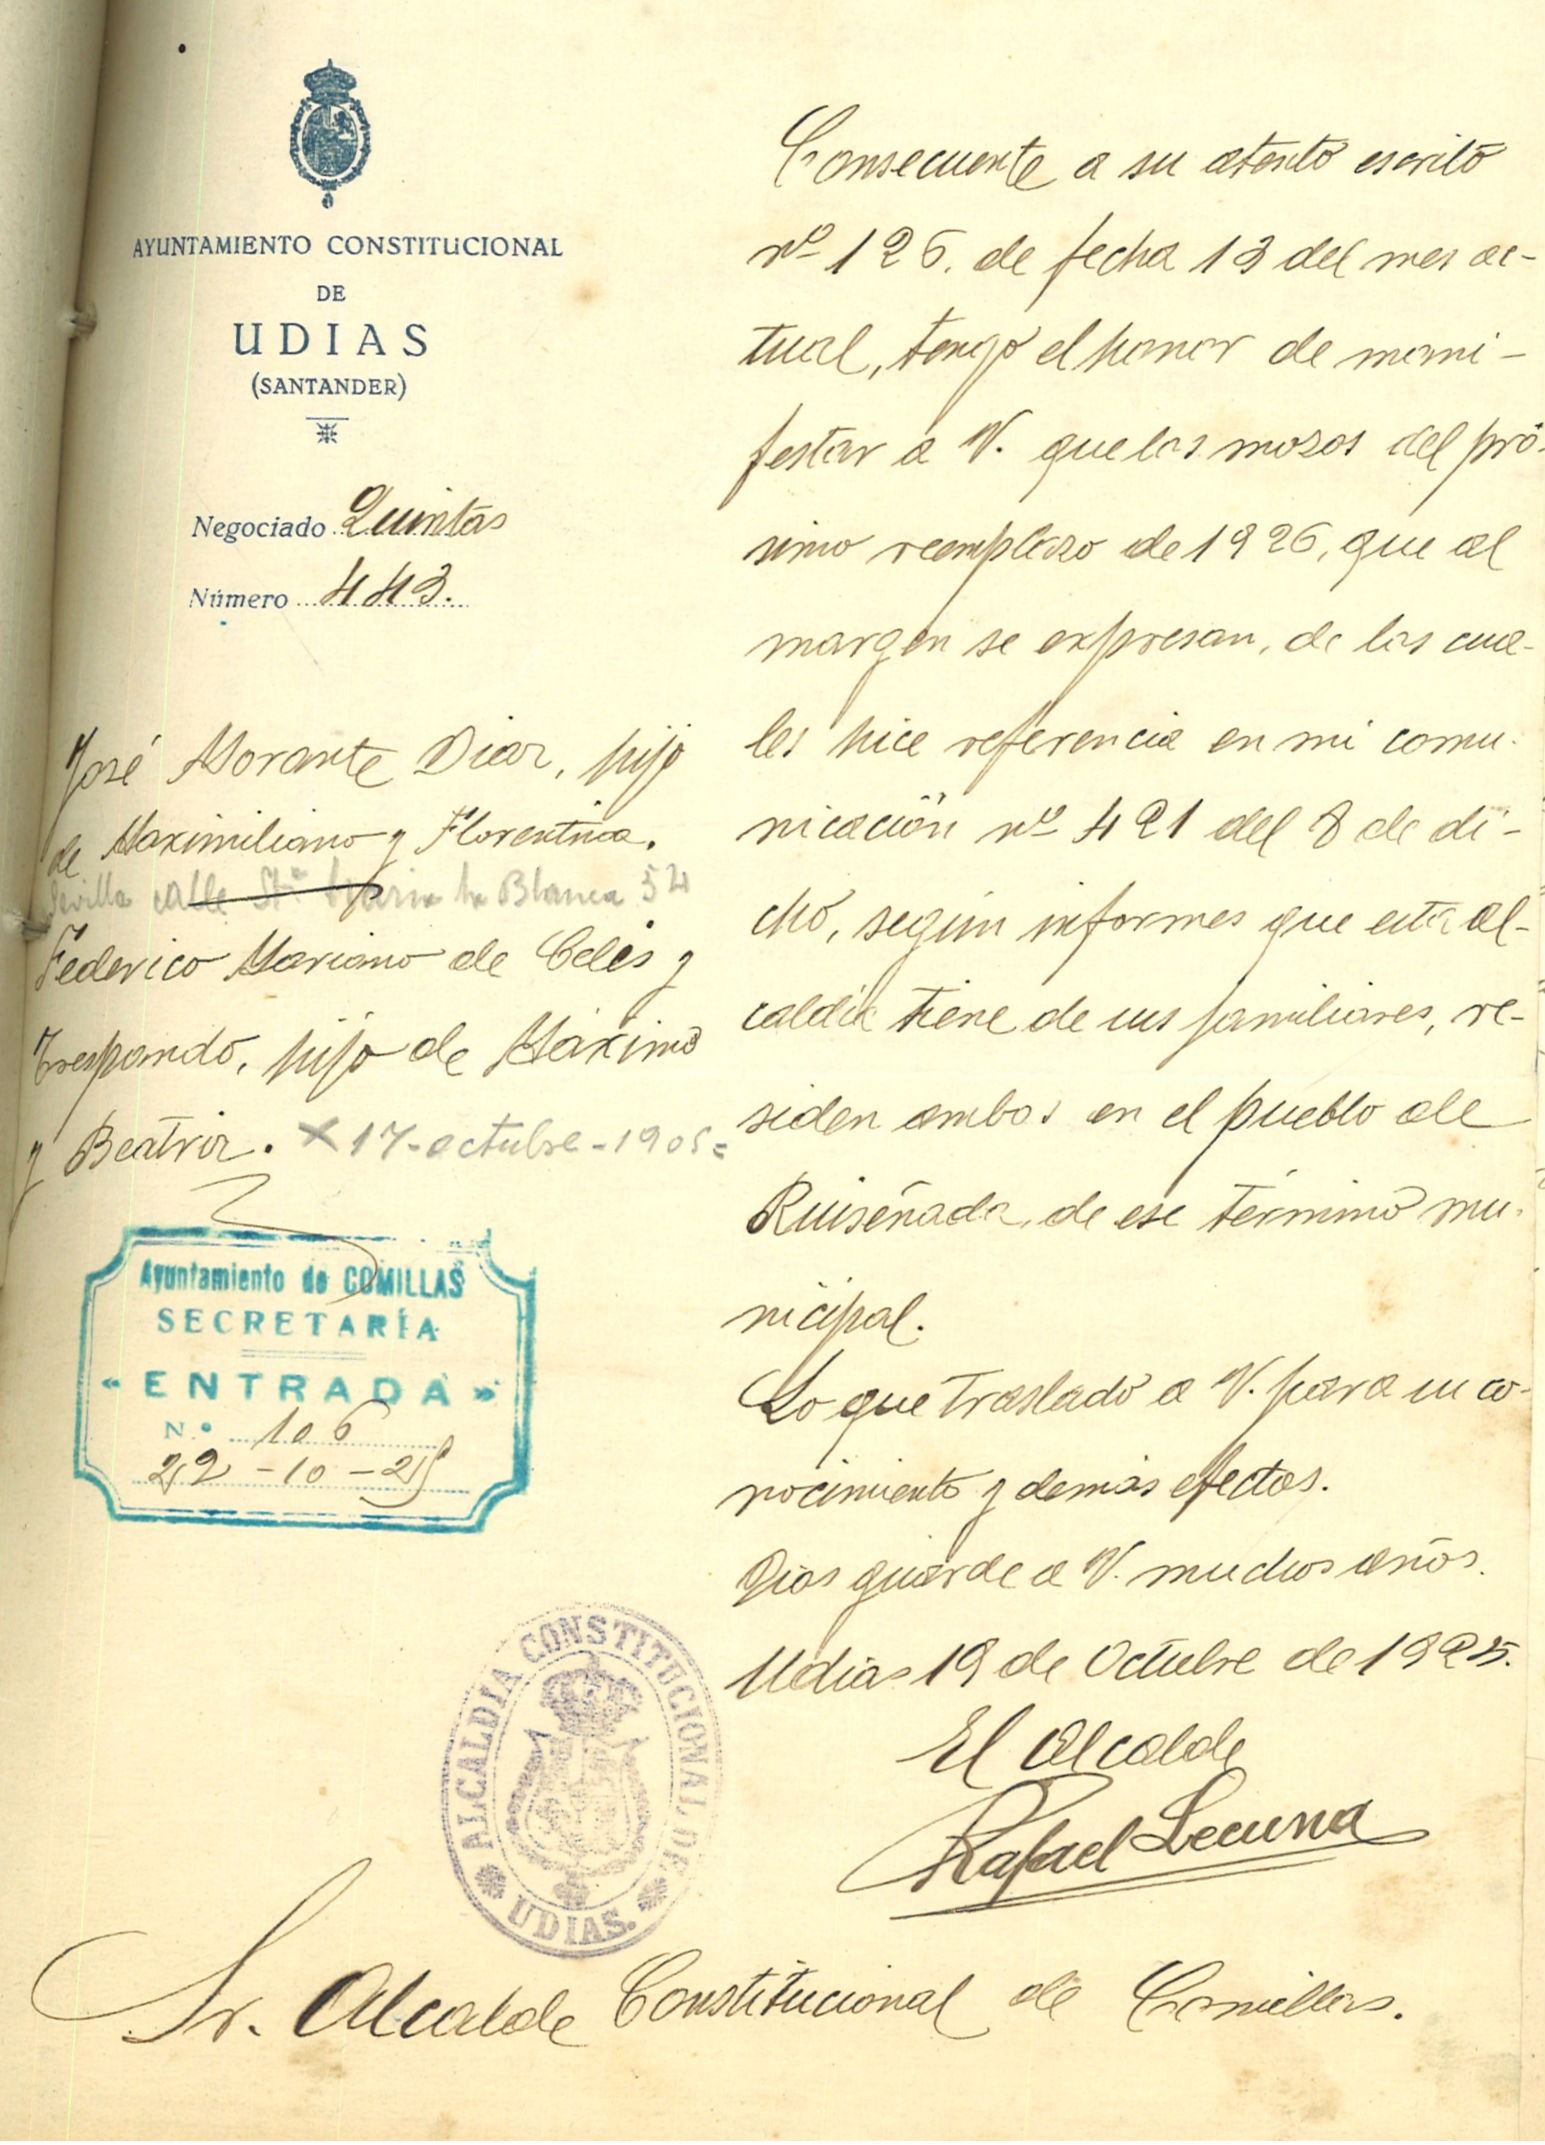 AYUNTAMIENTO CONSTITUCIONAL
DE
UDIAS
(SANTANDER)
Negociado Quintas
Número 443.
José Morante Diaz, hijo
de Maximiliano y Florentina.
Sevilla calle Sta Maria la Blanca 54
Federico Mariano de Celis y
Trespando, hijo de Máximo
y Beatriz. X 17-octubre-1905=
Ayuntamiento de COMILLAS
SECRETARÍA
«ENTRADA»
N.º 106
22-10-25
Consecuente a su atento escrito
nº 126. de fecha 13 del mes ac-
tual, tengo el honor de mani-
festar a V. que los mozos del pró-
simo reemplazo de 1926, que al
margen se expresan, de los cua-
les hice referencia en mi comu-
nicación nº 421 del 8 de di-
cho, según informes que esta al-
caldía tiene de sus familiares, re-
siden ambos en el pueblo de
Ruiseñada, de ese término mu-
nicipal.
Lo que traslado a V. para su co-
nocimiento y demás efectos.
Dios guarde a V. muchos años.
Udias 19 de Octubre de 1925.
El Alcalde
Rafael Lecuna
ALCALDIA CONSTITUCIONAL DE
UDIAS.
Sr. Alcalde Constitucional de Comillas.